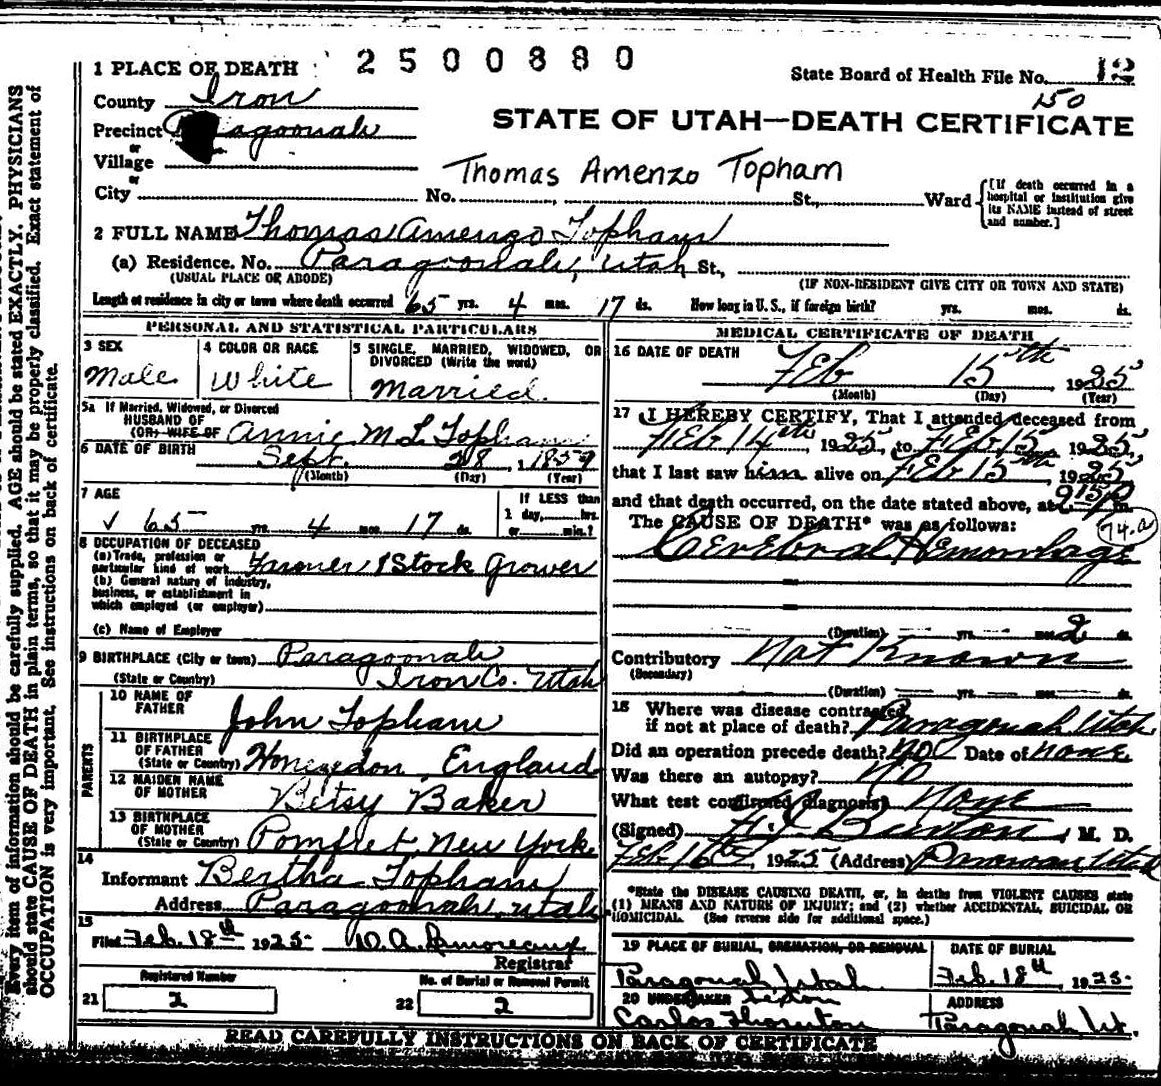 2500880
1 PLACE OF DEATH
State Board of Health File No. 12
150
County Iron
STATE OF UTAH—DEATH CERTIFICATE
Precinct Paragoonah
or
Village
or
Thomas Amenzo Topham
City No. St., Ward
[If death occurred in a hospital or institution give its NAME instead of street and number.]
2 FULL NAME Thomas Amenzo Topham
(a) Residence. No. Paragoonah, Utah St.,
(USUAL PLACE OR ABODE) (IF NON-RESIDENT GIVE CITY OR TOWN AND STATE)
Length of residence in city or town where death occurred 65 yrs. 4 mos. 17 ds. How long in U. S., if foreign birth? yrs. mos. ds.
PERSONAL AND STATISTICAL PARTICULARS
3 SEX
Male
4 COLOR OR RACE
White
5 SINGLE, MARRIED, WIDOWED, OR DIVORCED (Write the word)
Married.
5a If Married, Widowed, or Divorced
HUSBAND OF
(OR) WIFE OF Annie M L Topham
6 DATE OF BIRTH Sept. 28, 1859
(Month) (Day) (Year)
7 AGE
✓ 65 yrs. 4 mos. 17 ds.
If LESS than
1 day, hrs.
or min.?
8 OCCUPATION OF DECEASED
(a) Trade, profession or
particular kind of work Farmer & Stock Grower
(b) General nature of industry,
business, or establishment in
which employed (or employer)
(c) Name of Employer
9 BIRTHPLACE (City or town) Paragoonah
(State or Country) Iron Co. Utah
PARENTS
10 NAME OF
FATHER John Topham
11 BIRTHPLACE
OF FATHER
(State or Country) England
12 MAIDEN NAME
OF MOTHER Betsy Baker
13 BIRTHPLACE
OF MOTHER
(State or Country) Pomfret New York
14
Informant Bertha Topham
Address Paragoonah, Utah
15
Filed Feb. 18th 1925 W. A.
Registrar
Registered Number
21 2
No. of Burial or Removal Permit
22 2
MEDICAL CERTIFICATE OF DEATH
16 DATE OF DEATH
Feb 15th, 1925
(Month) (Day) (Year)
17 I HEREBY CERTIFY, That I attended deceased from
Feb 14th 1925, to Feb 15 1925,
that I last saw him alive on Feb 15th, 1925,
and that death occurred, on the date stated above, at 9:15 P m.
The CAUSE OF DEATH* was as follows: 74.a
Cerebral Hemorrhage
(Duration) yrs. mos. 2 ds.
Contributory Not Known
(Secondary)
(Duration) yrs. mos. ds.
18 Where was disease contracted
if not at place of death? Paragonah Utah
Did an operation precede death? NO Date of None
Was there an autopsy? NO
What test confirmed diagnosis? None
(Signed) Burton, M. D.
Feb 16th, 1925 (Address) Parowan Utah
*State the DISEASE CAUSING DEATH, or, in deaths from VIOLENT CAUSES state
(1) MEANS AND NATURE OF INJURY; and (2) whether ACCIDENTAL, SUICIDAL OR
HOMICIDAL. (See reverse side for additional space.)
19 PLACE OF BURIAL, CREMATION, OR REMOVAL
Paragonah Utah
DATE OF BURIAL
Feb. 18th, 1925
20 UNDERTAKER Sexton
Carlos Thornton
ADDRESS
Paragonah Ut.
READ CAREFULLY INSTRUCTIONS ON BACK OF CERTIFICATE
Every item of information should be carefully supplied. AGE should be stated EXACTLY. PHYSICIANS
should state CAUSE OF DEATH in plain terms, so that it may be properly classified. Exact statement of
OCCUPATION is very important. See instructions on back of certificate.